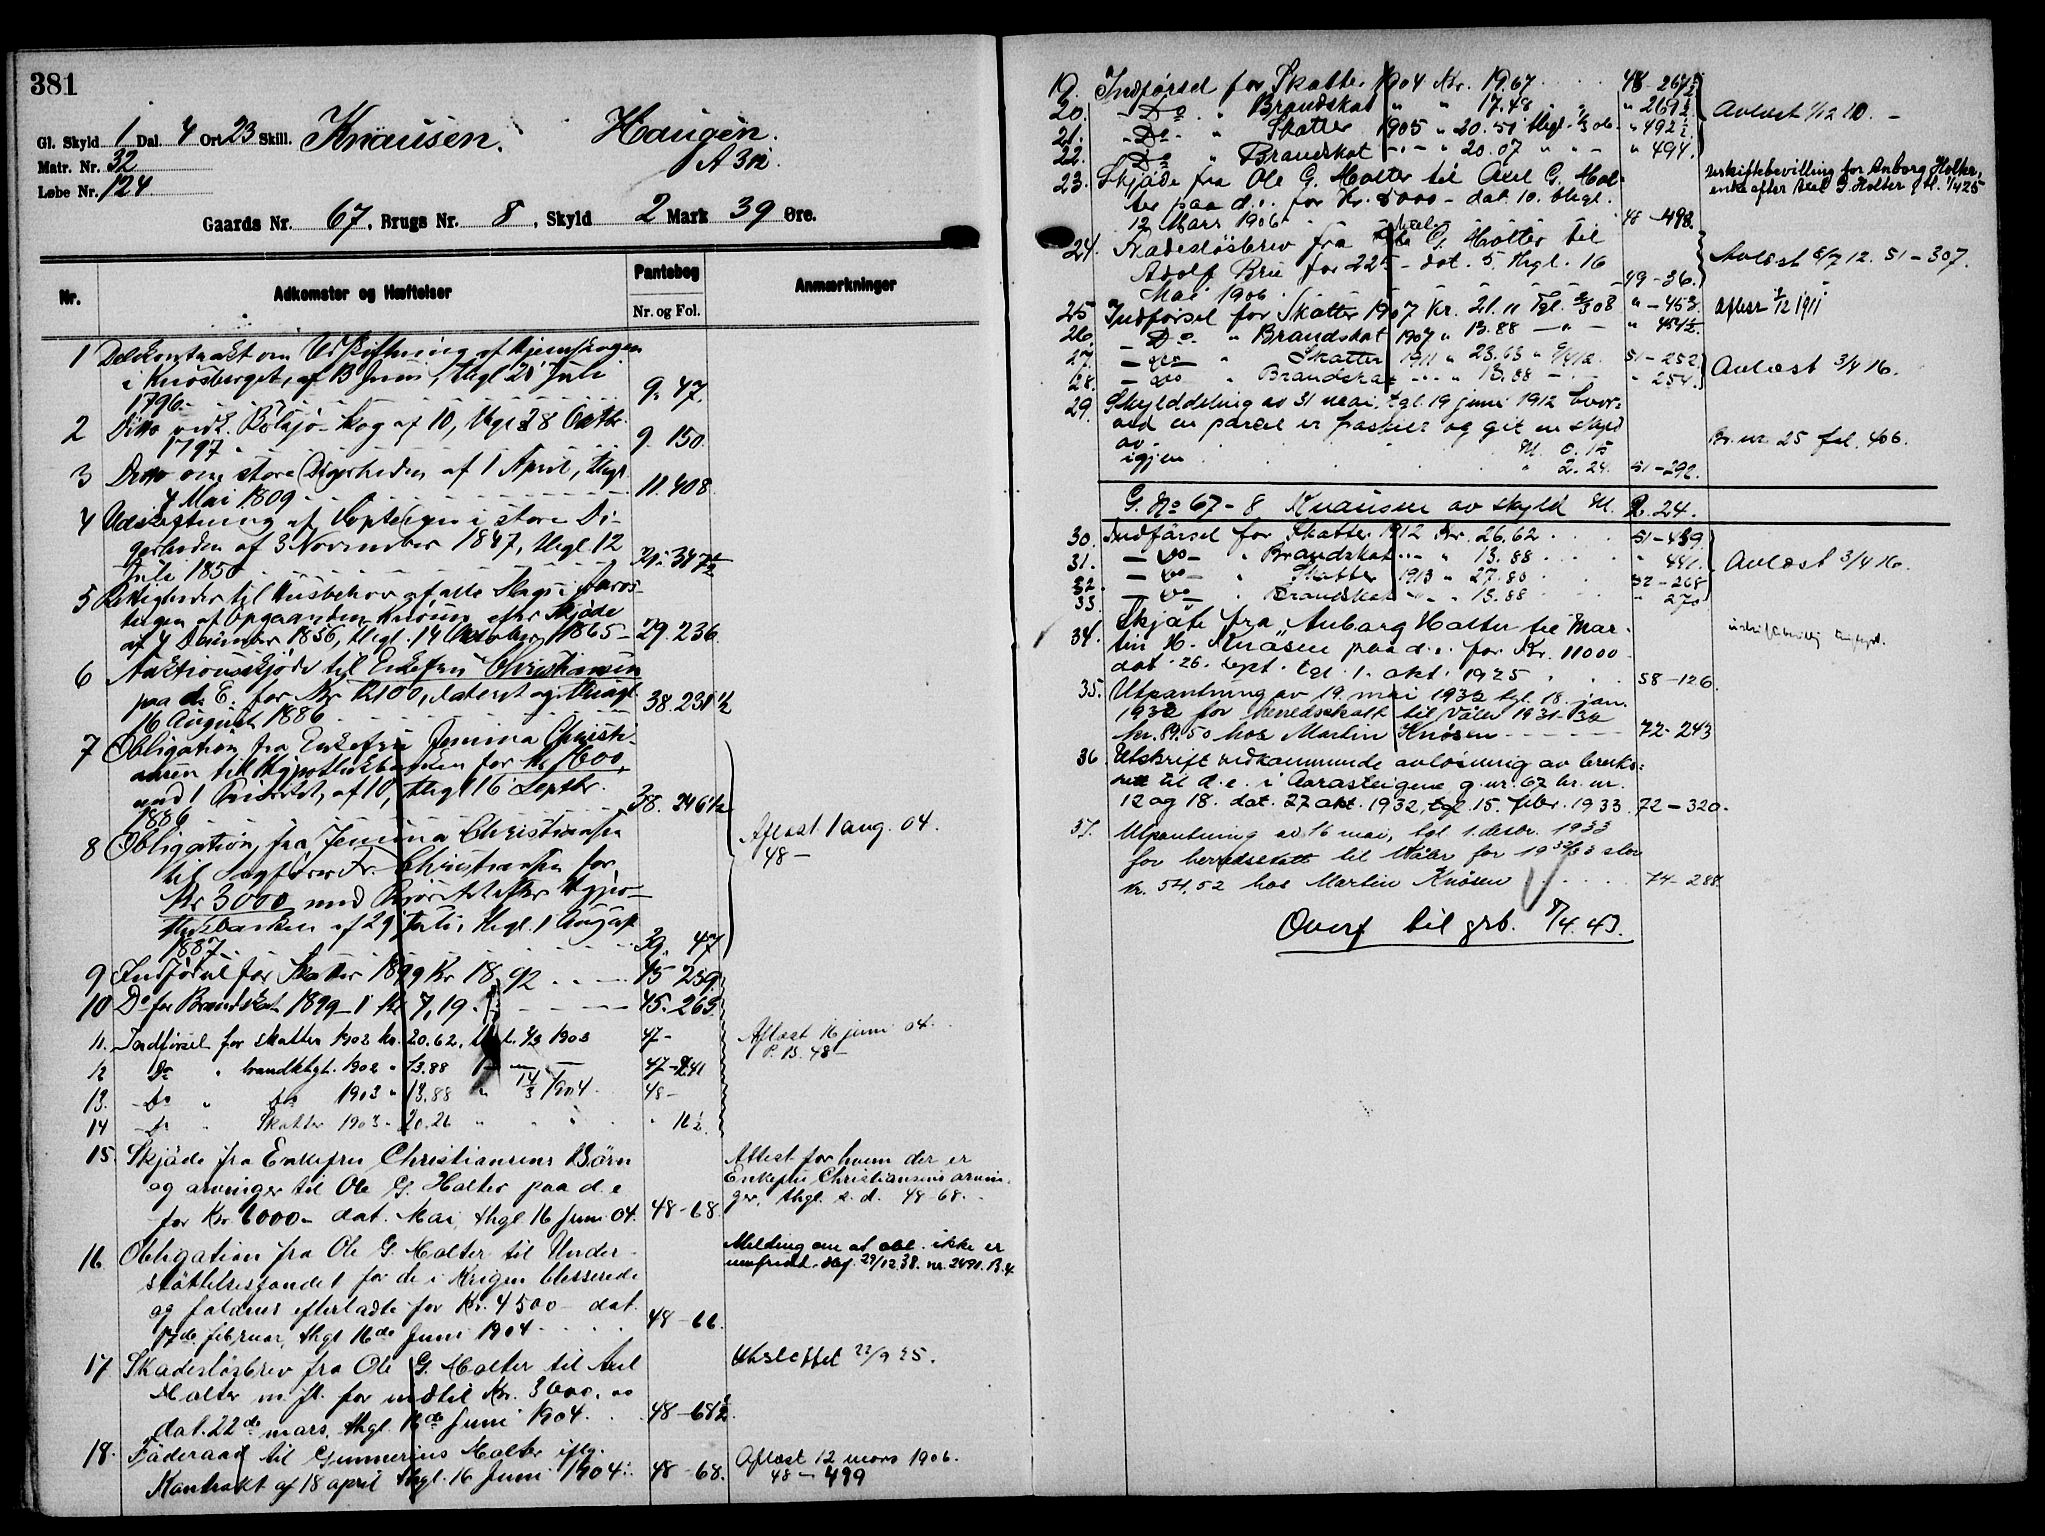 381
Gl. Skyld 1 Dal. 4 Ort 23 Skill. Knausen. Haugen.
Matr. Nr. 32
Løbe Nr. 124.
Gaards Nr. 67, Brugs Nr. 8, Skyld 2 Mark 39 Øre.
Nr. Adkomster og Hæftelser Pantebog Anmærkninger
Nr. og Fol.
1 Delekontrakt om Udskiftning af Hjemskogen
i Knøsberget, af 13 Juni, thgl 20 Juli
1796 9. 47.
2 Ditto vedk. Bølsjø-Skog af 10, thgl 28 Octbr.
1797 9. 150.
3 Ditto om store Digerheden af 1 April, thgl
4 Mai 1809 11. 408
4 Udskiftning af i store Di-
gerheden af 3 November 1847, thgl. 12
Juli 1850
5 Rettigheder til Husbehov af alle Slags i Aaros-
teigen af Opgaarden Knøsen efter Skjøde
af 7 December 1856, thgl. 14 October 1865 - 29. 236.
6 Auktionsskjøde til Enkefru Christiansen
paa d. E. for Kr. , dateret og thingl
16 August 1886 38. 231½
7 Obligation fra Enkefru Jemina Christi-
ansen til Hypothekbanken for Kr 1600,
med 1 Prioritet, af 10, thgl 16 Septbr.
1886 38. 246½
8 Obligation fra Jemina Christiansen
til Sagfører Fr. Christiansen for
Kr 3000 med Prioritet efter Hypo-
thekbanken af 29 Juli, thgl. 1 August
1887 39. 47
Aflæst 1 aug. 04.
48 -
9 Indførsel for Skatter 1899 Kr 18,92 45 259
10 Do for Brandskat 1899 - 1 Kr 7,19 45. 263
11. Indførsel for skatter 1902 kr. 20.62, thgl. 4/3 1903 47-
12 Do " brandktgt. 1902 " 13.88 47-241
13. - Do " Do 1903 " 13.88 " 14/3 1904 48 -
14 - Do " Skatter 1903 " 20.26 " " " 16½
Aflæst 16 juni 04.
P. B. 48 -
15. Skjøde fra Enkefru Christiansens Børn
og arvinger til Ole G. Holter paa d. e
for Kr. 6000 - dat. Mai, thgl 16 Juni 04. 48 - 68.
Attest for hvem der er
Enkefru Christiansens arvin-
ger, thgl. s. d. 48-68.
16 Obligation fra Ole G. Holter til Under-
støttelsesfondet for de i Krigen blesserede
og faldnes efterladte for Kr. 4500 - dat
17de februar, thgl 16de Juni 1904 48 - 66.
Melding om at obl. ikke er
innfridt. dbf. 29/12 38. nr. 2491. B.4.
17 Skadesløsbrev fra Ole G. Holter til Axel
Holter m. fl. for indtil Kr. 3000. 00
dat. 22de mars, thgl. 16de Juni 1904. 48 - 68½.
Utslettet 22/9 25.
18. Føderaad til Gunnerius Holter iflg.
Kontrakt af 18 april thgl. 16 Juni 1904. 48 - 68.
Aflæst 12 mars 1906.
48 - 499
19. Indførsel for Skatter 1904 Kr. 19.67. 48 - 267½
20. - Do. " Brandskat " " 17.48 " 269½
21. - Do. " Skatter 1905 " 20.51 thgl. 06. " 492½
22. - Do " Brandskat - " - " 20.07 " " - " 494.
Avlæst 1/12 10. -
23. Skjøde fra Ole G. Holter til Axel G. Hol-
ter paa d. e. for Kr. 8000 - dat. 10. thgl.
12 Mars 1906. 48 - 498.
Uskiftebevilling for Anborg Holter,
enke efter Axel G. Holter
24. Skadesløsbrev fra Axel G. Holter til
Adolf Brie for 225 - dat. 5. thgl. 16
Mai 1906. 49 - 36.
Avlæst 6/7 12. 51 - 307.
25 Indførsel for Skatter 1907 Kr. 21.11 tgl. 2/3 08 " - 453.
26. - Do. " Brandskat 1907 " 13.88 - " - " 454½
Aflæst 1/2 1911
27. - Do - " Skatter 1911 " 23.63 " 51 - 252.
28. - Do " Brandskat - " - " 13.88 - " 254.
Avlæst 3/4 16.
29. Skylddeling av 31 mai, tgl. 19 juni 1912 hvor-
ved en parcel er fraskilt og git en skyld
av M. 0.15
igjen " 2.24. 51 - 292.
Br. nr. 25 fol. 406.
G. No 67 - 8 Knausen av skyld M. 2.24.
30. Indførsel for Skatter 1912 Kr. 26.62 51 - 439.
31. - Do - " Brandskat - " - " 13.88 " 441.
32. - Do - " Skatter 1913 " 27.80 52 - 268
33. - Do - " Brandskat - " - " 13.88 " 270
Avlæst 3/4 16.
34. Skjøte fra Anborg Holter til Mar-
tin H. Knøsen paa d. e. for Kr. 11000
dat. 26. sept. tgl. 1. okt. 1925 58 - 126.
35. Utpantning av 19. mai 1932 tgl. 18. jan.
1932 for herredsskatt til Våler 1931-32
kr. 89.50 hos Martin Knøsen 72 - 243
36 Utskrift vedkommende avløsning av bruks-
rett til d. e. i Aarasteigene g. nr. 67 br. nr.
12 og 18. dat. 27 okt. 1932, tgl. 15. febr. 1933 72 - 320.
37. Utpantning av 16 mai, tgl. 1. desbr. 1933
for herredsskatt til Våler for 1932/33 stor
kr. 54.52 hos Martin Knøsen 74 - 288
Overf til grb. 8/4. 43.